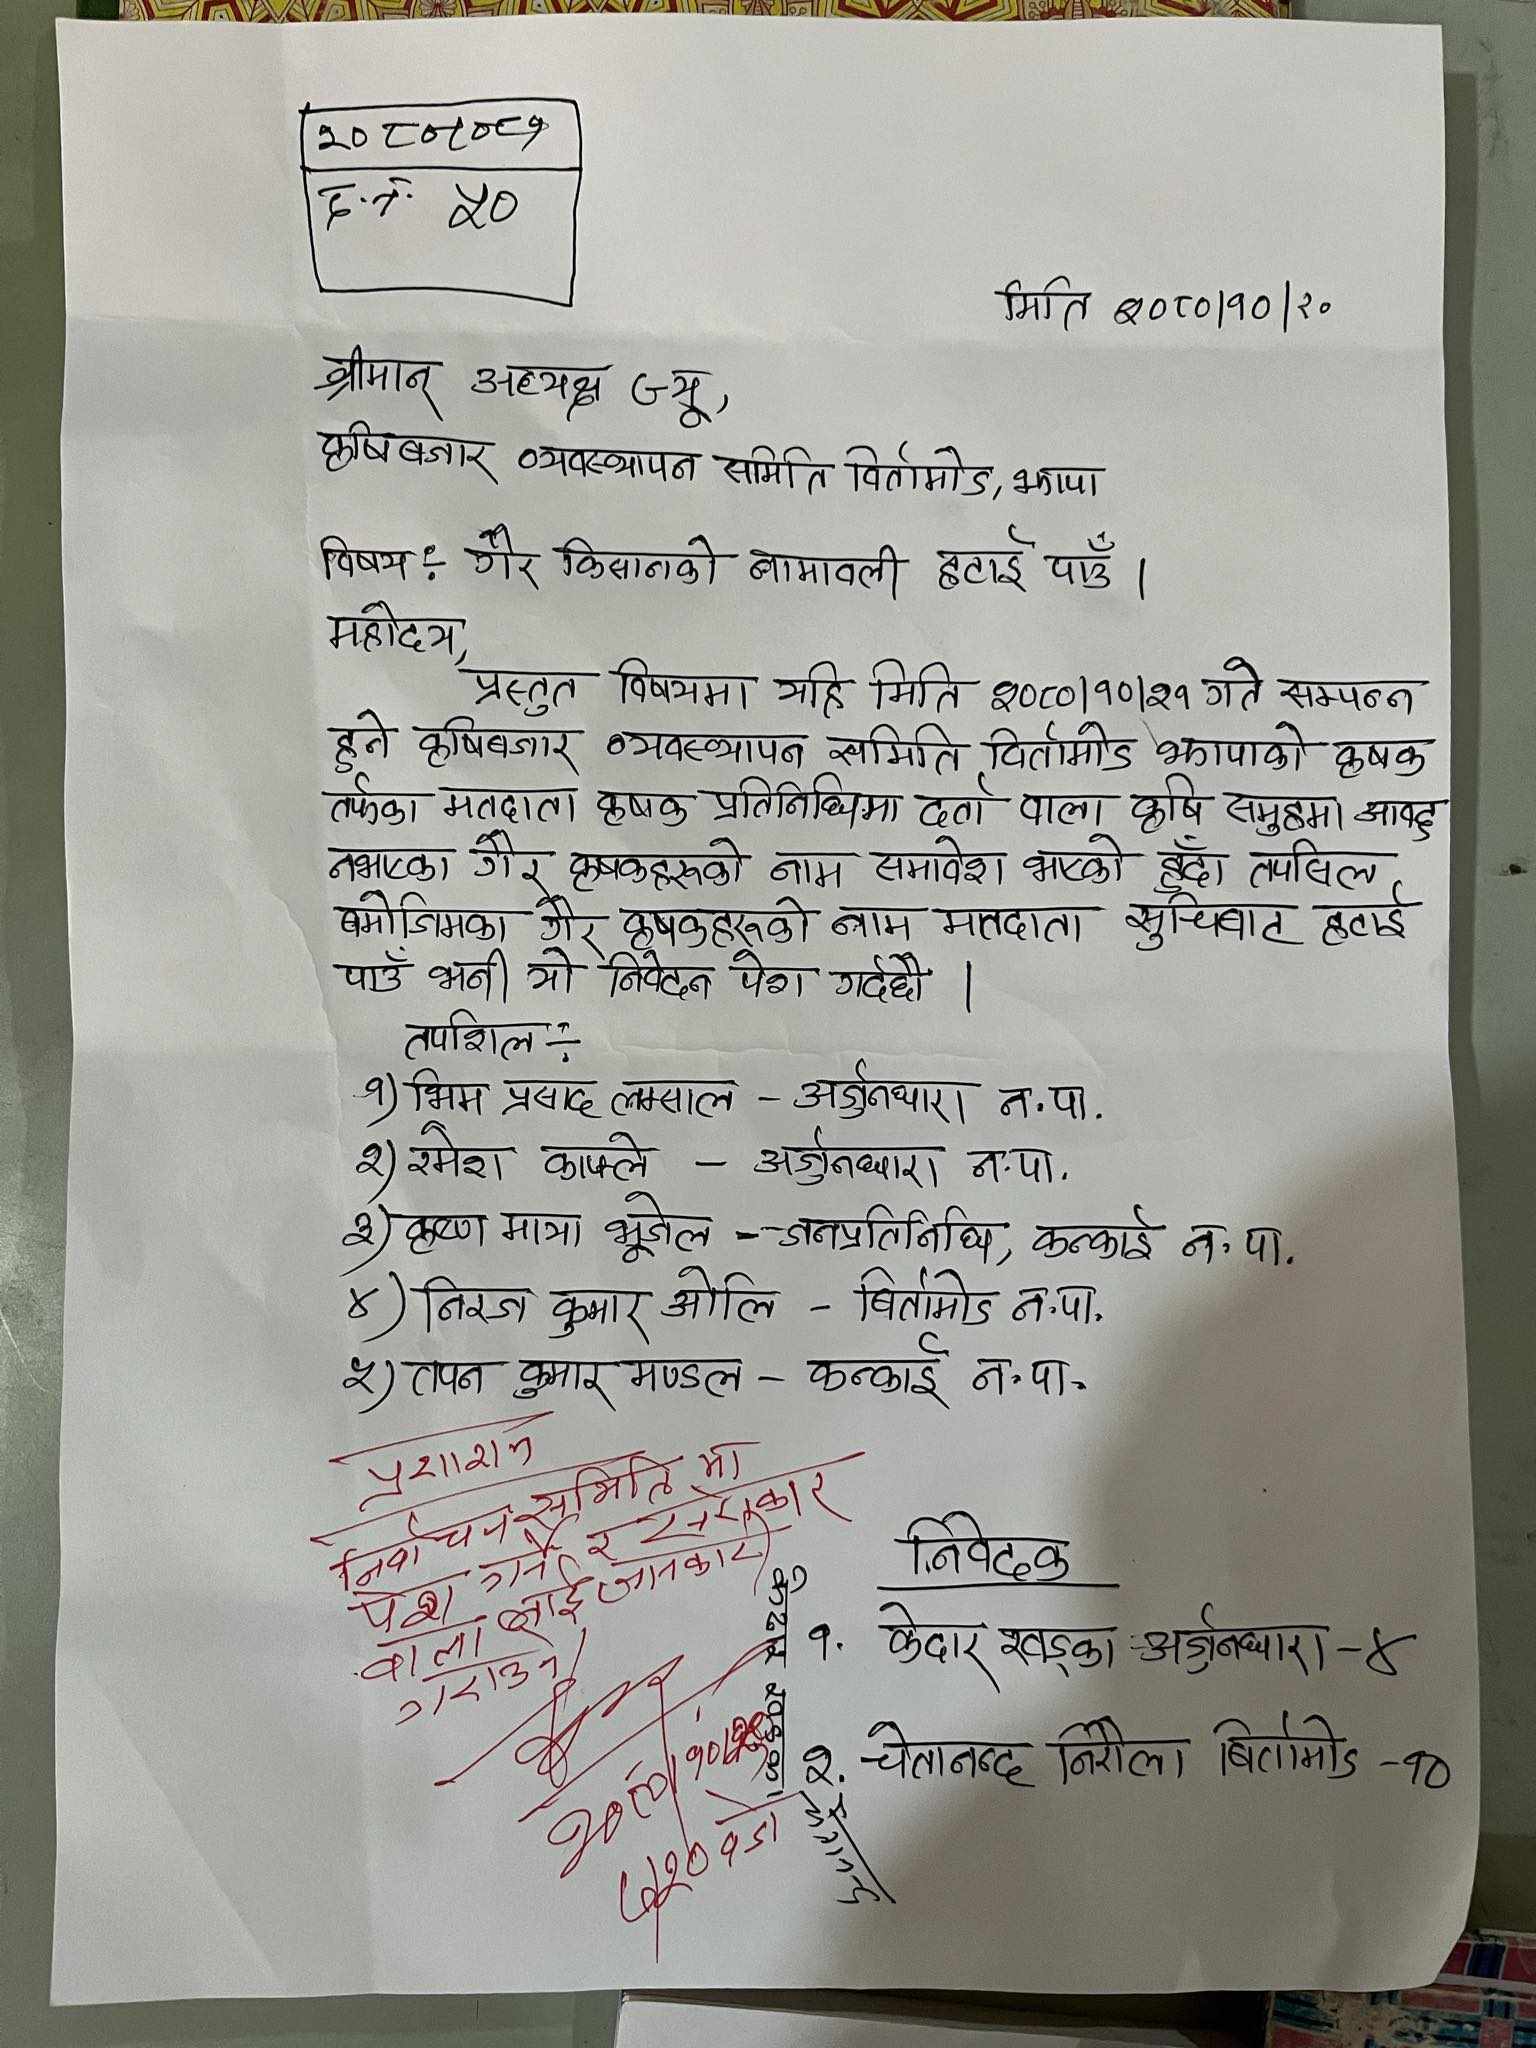 द.नं. ५०
मिति २०८०/१०/२०
श्रीमान् अध्यक्ष ज्यू,
कृषिबजार व्यवस्थापन समिति विर्तामोड, झापा
विषय :- गैर किसानको नामावली हटाई पाउँ ।
महोदय,
प्रस्तुत विषयमा यहि मिति २०८०/१०/२१ गते सम्पन्न
हुने कृषिबजार व्यवस्थापन समिति विर्तामोड झापाको कृषक
तर्फका मतदाता कृषक प्रतिनिधिमा दर्ता वाला कृषि समुहमा आवद्ध
नभएका गैर कृषकहरूको नाम समावेश भएको हुँदा तपसिल
बमोजिमका गैर कृषकहरूको नाम मतदाता सुचिबाट हटाई
पाउँ भनी यो निवेदन पेश गर्दछौ ।
तपशिल :-
१) भिम प्रसाद लम्साल - अर्जुनधारा न.पा.
२) रमेश काफ्ले - अर्जुनधारा न.पा.
३) कृष्ण माया भूजेल - जनप्रतिनिधि, कन्काई न.पा.
४) निरज कुमार ओलि - बिर्तामोड न.पा.
५) तपन कुमार मण्डल - कन्काई न.पा.
प्रशाशन
निर्वाचन समिति मा
पेश गर्ने र सरोकार
वाला लाई जानकारी
गराउने
निवेदक
१. केदार खड्का अर्जुनधारा - ४
२. चेतानन्द निरौला बिर्तामोड - १०
केदार खड्का